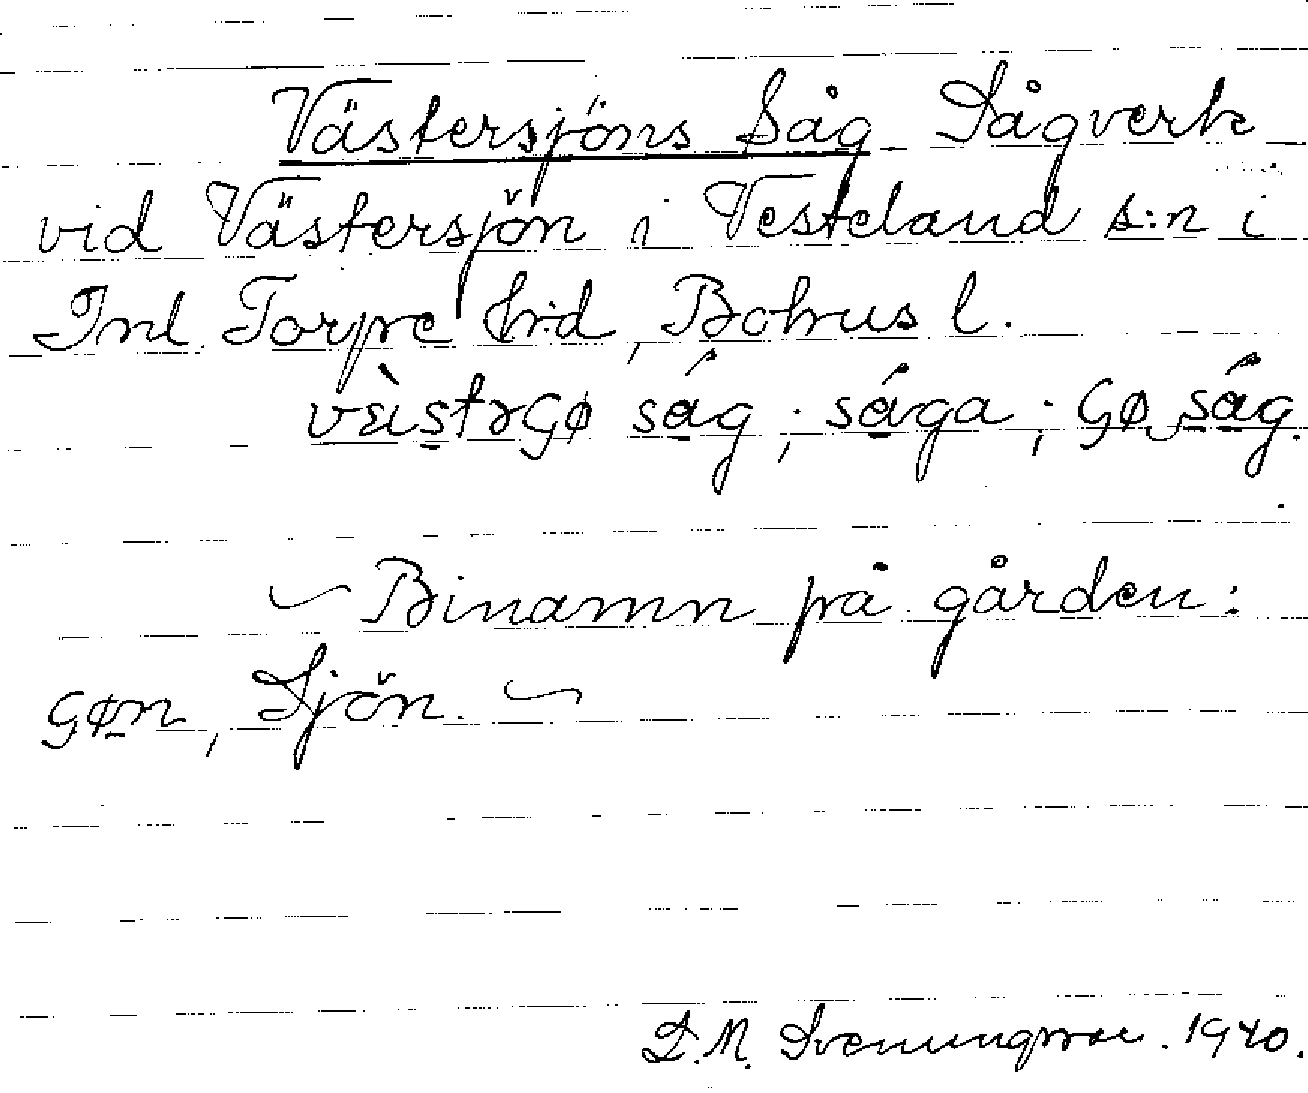 Västersjöns Såg Sågverk
vid Västersjön i Vesteland s:n i
Inl. Torpe hrd, Bohus l.
såg; såga;
Binamn på gården:
Sjön.
Svenungsson. 1940.